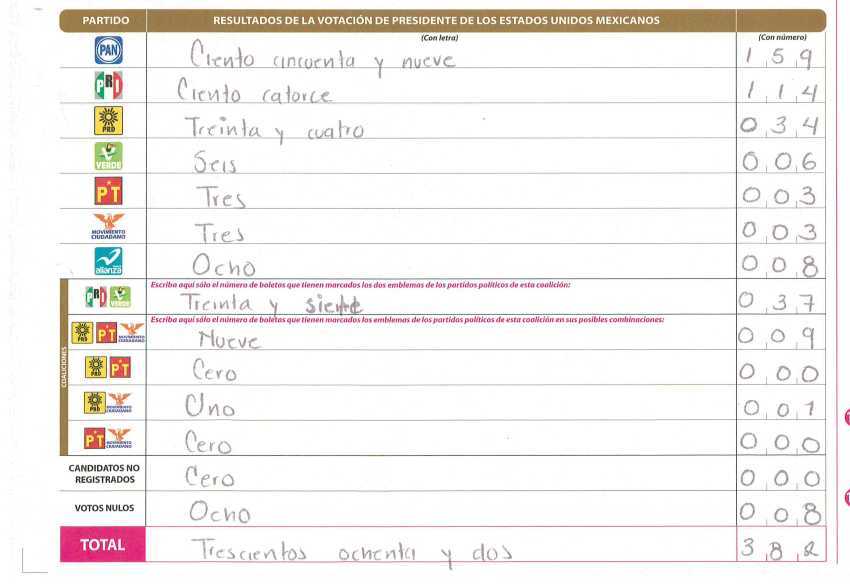 PARTIDO RESULTADOS DE LA VOTACIÓN DE PRESIDENTE DE LOS ESTADOS UNIDOS MEXICANOS
(Con letra) (Con número)
PAN Ciento cincuenta y nueve 1 5 9
PRI Ciento catorce 1 1 4
PRD Treinta y cuatro 0 3 4
VERDE Seis 0 0 6
PT Tres 0 0 3
MOVIMIENTO CIUDADANO Tres 0 0 3
nueva alianza Ocho 0 0 8
COALICIONES
Escriba aquí sólo el número de boletas que tienen marcados los dos emblemas de los partidos políticos de esta coalición:
PRI VERDE Treinta y siente 0 3 7
Escriba aquí sólo el número de boletas que tienen marcados los emblemas de los partidos políticos de esta coalición en sus posibles combinaciones:
PRD PT MOVIMIENTO CIUDADANO Nueve 0 0 9
PRD PT Cero 0 0 0
PRD MOVIMIENTO CIUDADANO Uno 0 0 1
PT MOVIMIENTO CIUDADANO Cero 0 0 0
CANDIDATOS NO REGISTRADOS Cero 0 0 0
VOTOS NULOS Ocho 0 0 8
TOTAL Trescientos ochenta y dos 3 8 2